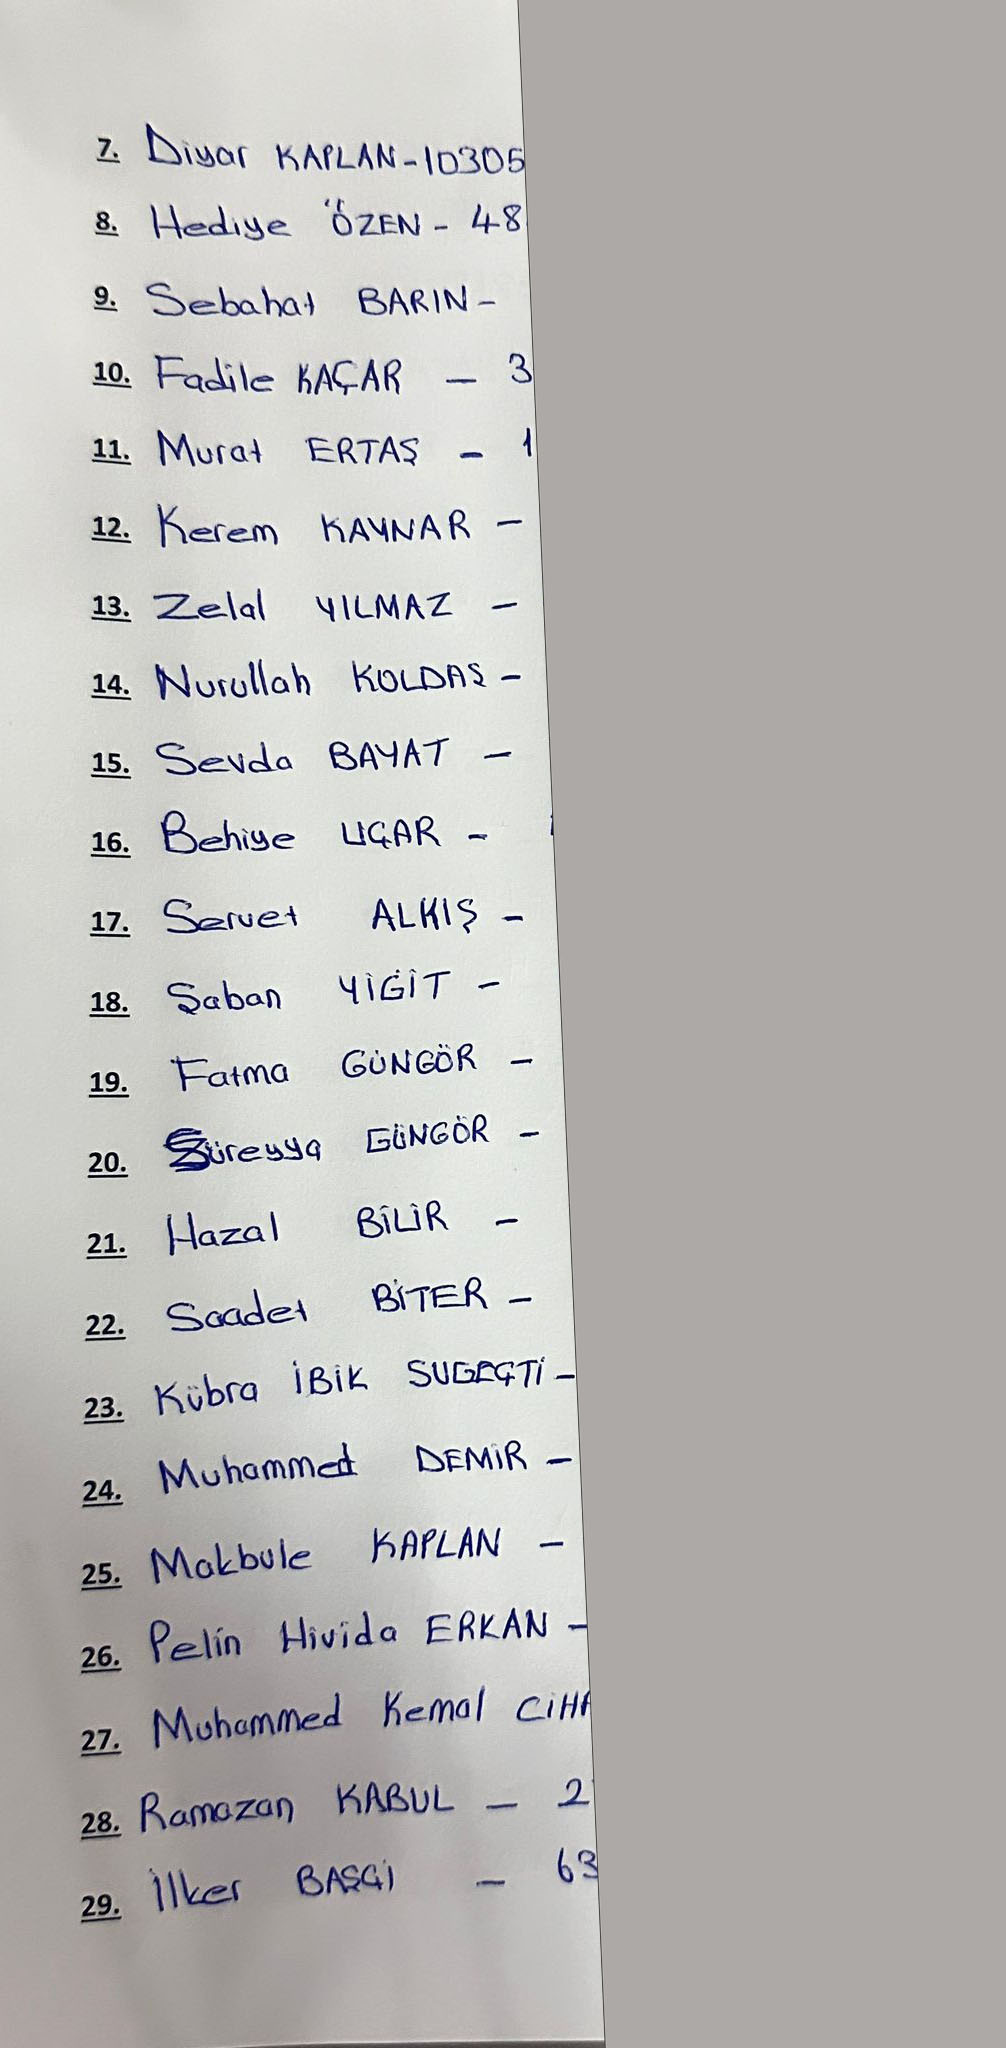 7. Diyar KAPLAN-10305
8. Hediye ÖZEN - 48
9. Sebahat BARIN-
10. Fadile KAÇAR - 3
11. Murat ERTAŞ - 1
12. Kerem KAYNAR -
13. Zelal YILMAZ -
14. Nurullah KOLDAŞ -
15. Sevda BAYAT -
16. Behiye UÇAR -
17. Servet ALKIŞ -
18. Şaban YİĞİT -
19. Fatma GÜNGÖR -
20. Süreyya GÜNGÖR -
21. Hazal BİLİR -
22. Saadet BİTER -
23. Kübra İBİK SUGEÇTİ -
24. Muhammed DEMİR -
25. Makbule KAPLAN -
26. Pelin Hivida ERKAN -
27. Muhammed Kemal CİHA
28. Ramazan KABUL - 2
29. İlker BAŞÇİ - 63